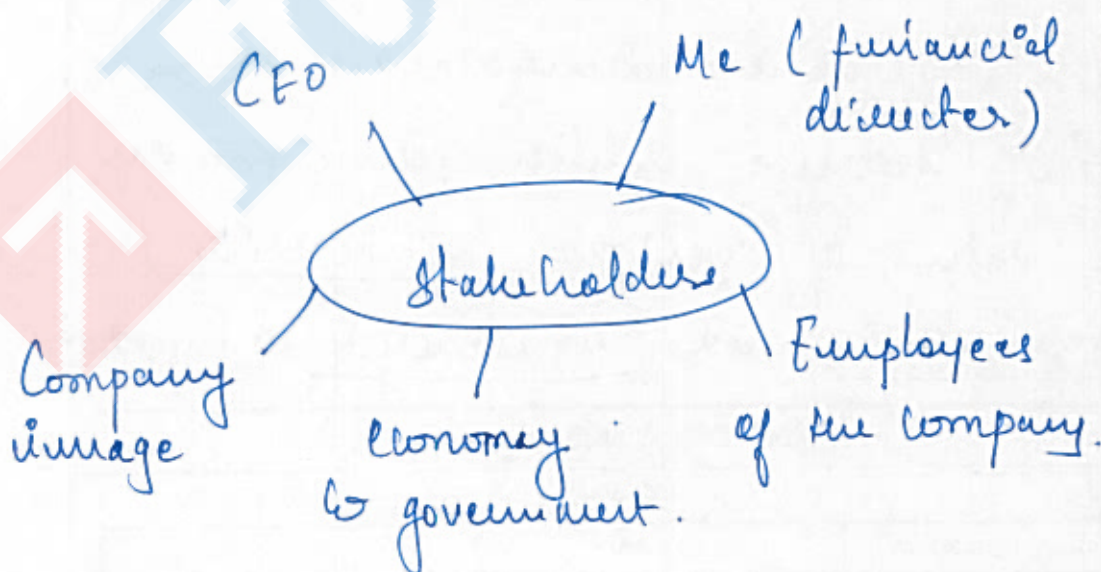 CEO
Me (financial
director)
Stakeholders
Company
image
economy
& government.
Employees
of the company.